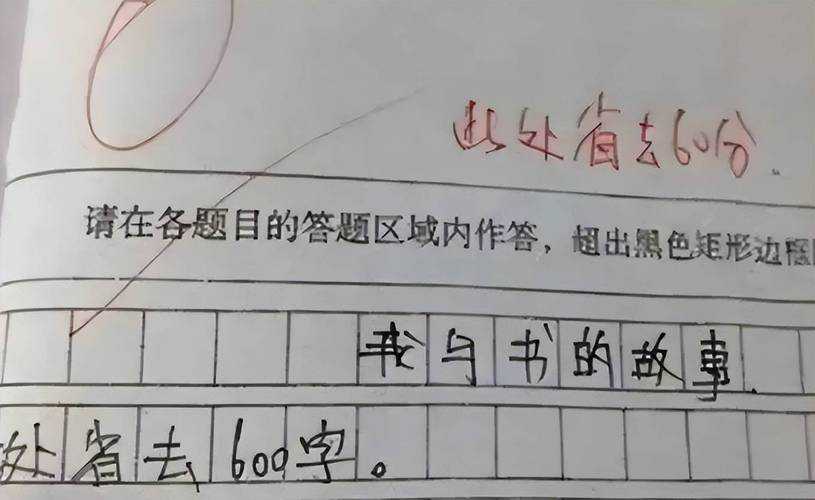 此处省去60分.
请在各题目的答题区域内作答，超出黑色矩形边框
我与书的故事.
处省去600字。